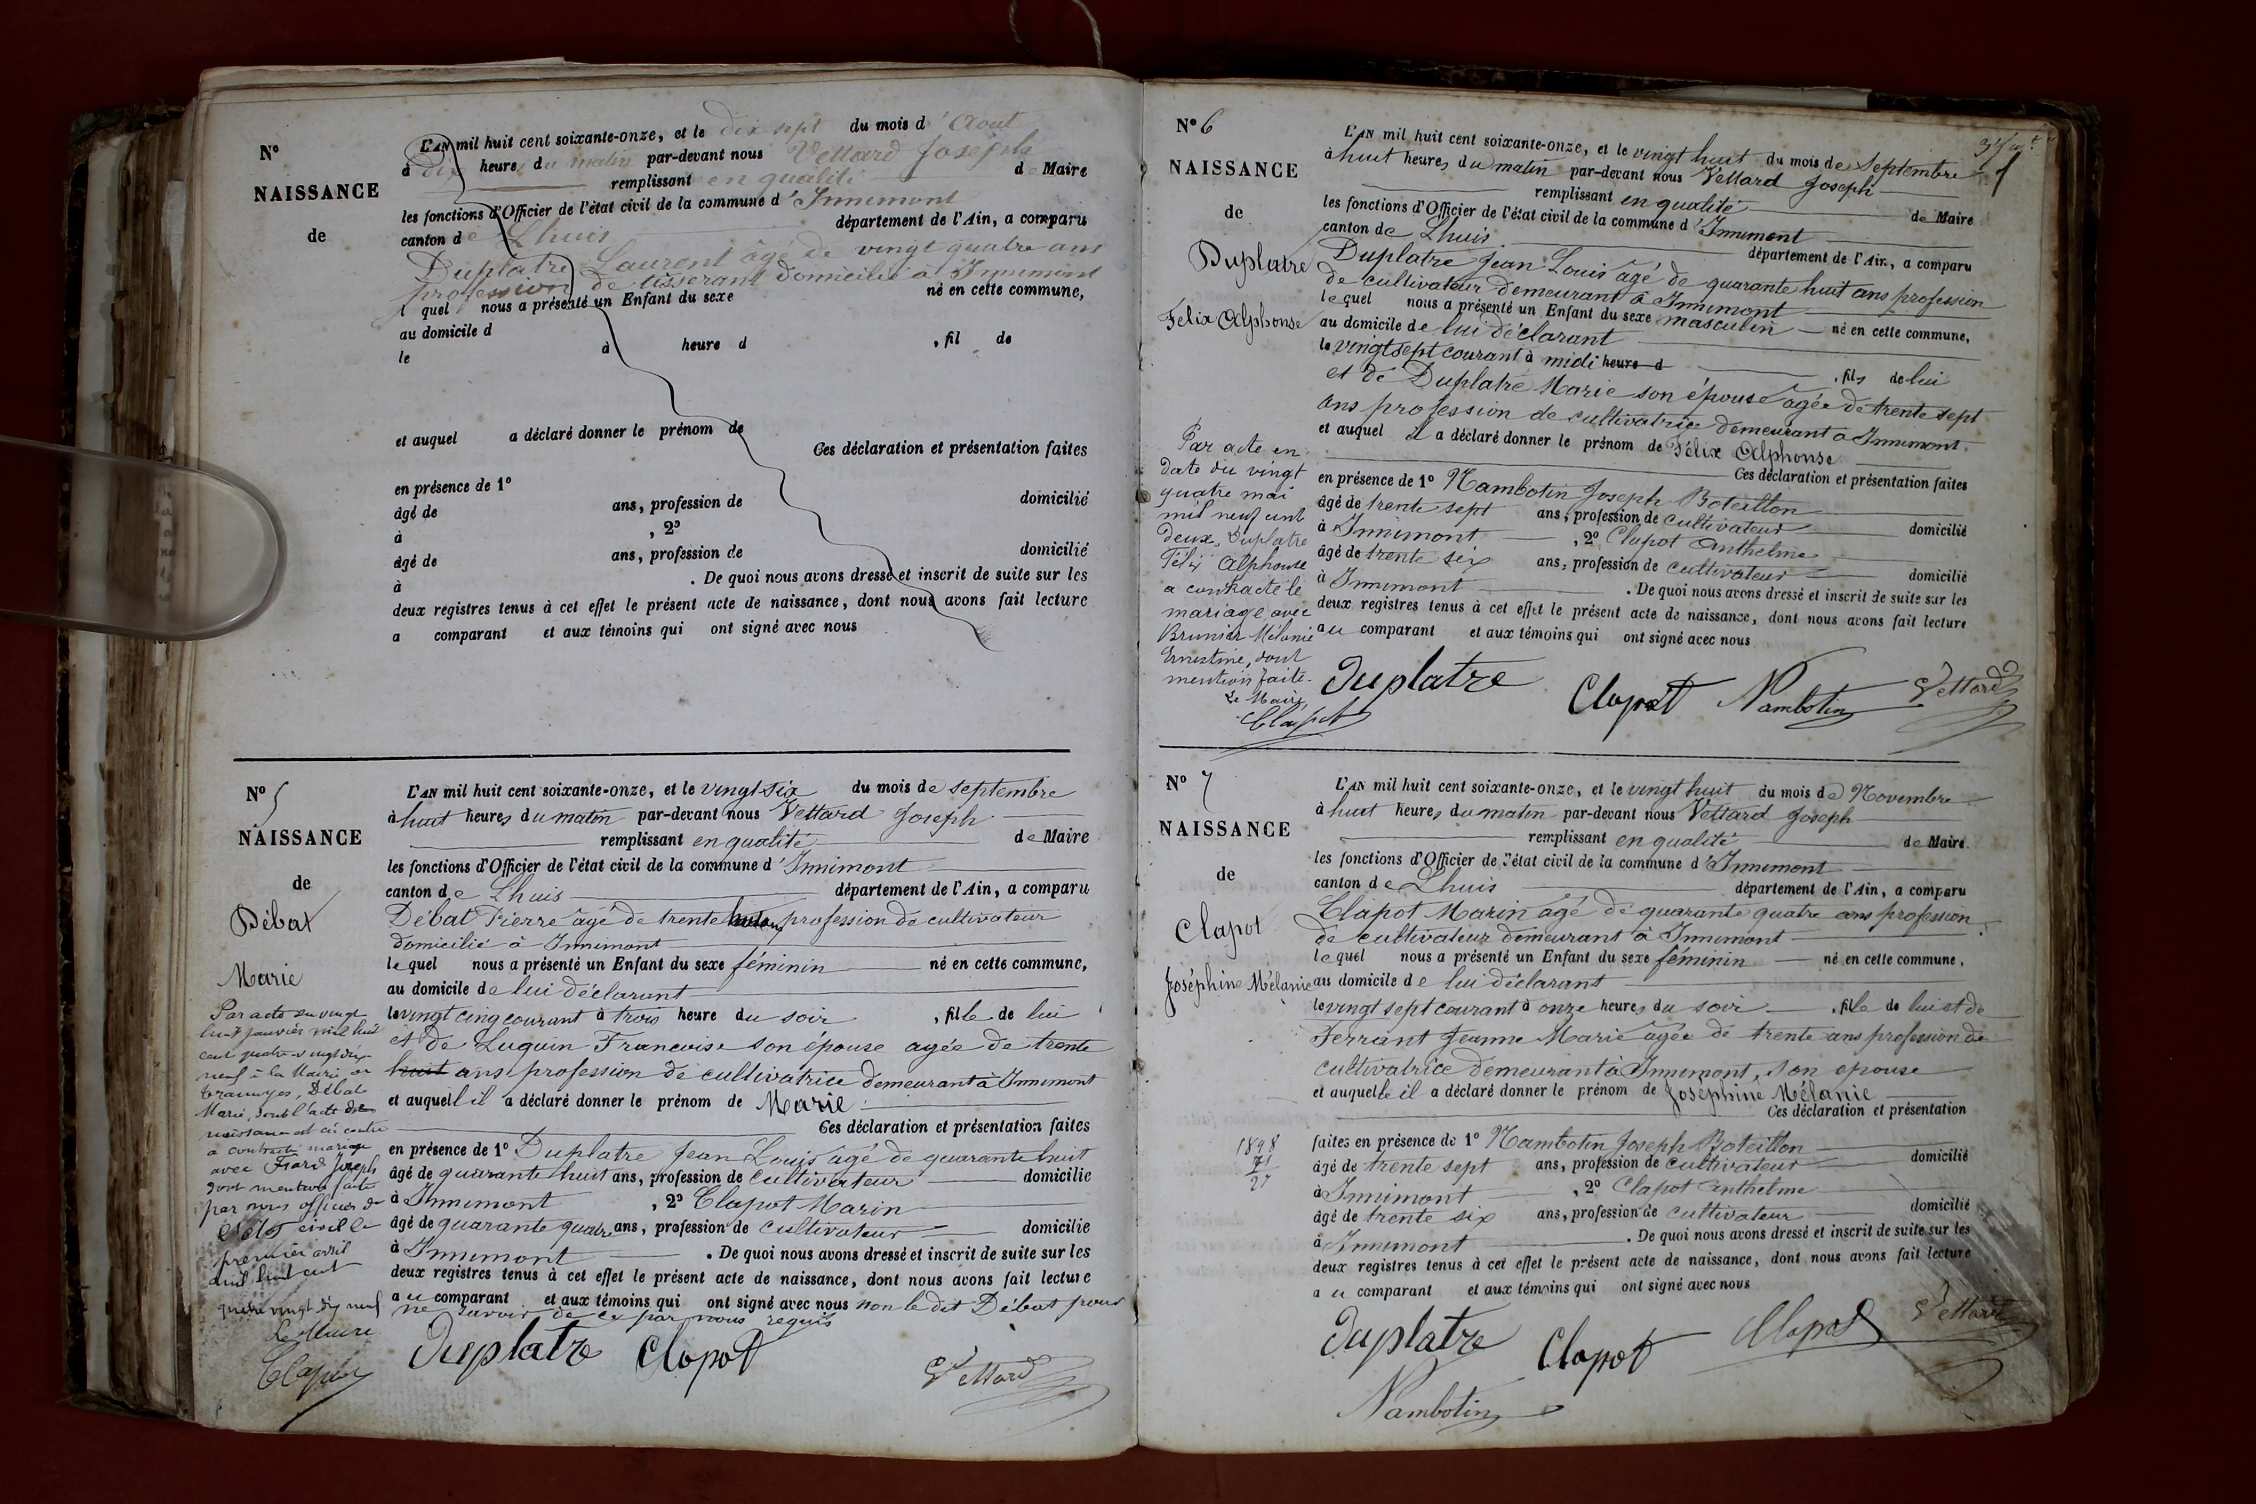 N°
NAISSANCE
de
L'AN mil huit cent soixante-onze, et le dix sept du mois d'Aout
à dix heures du matin par-devant nous Vettard Joseph
remplissant en qualité de Maire
les fonctions d'Officier de l'état civil de la commune d'Innimont
canton de Lhuis département de l'Ain, a comparu
Duplatre Laurent âgé de vingt quatre ans
profession de tisserant domicilié à Innimont
l quel nous a présenté un Enfant du sexe né en cette commune,
au domicile d
le à heure d , fil de
et auquel a déclaré donner le prénom de
Ces déclaration et présentation faites
en présence de 1°
âgé de ans, profession de domicilié
à , 2°
âgé de ans, profession de domicilié
à . De quoi nous avons dressé et inscrit de suite sur les
deux registres tenus à cet effet le présent acte de naissance, dont nous avons fait lecture
a comparant et aux témoins qui ont signé avec nous
N° 5
NAISSANCE
de
Débat
Marie
Par acte du vingt
huit janvier mil huit
cent quatre vingt dix
neuf à la Mairie de
Tramoyes, Débat
Marie, dont l'acte de
naissance est ci contre
a contracté mariage
avec Fiard Joseph
dont mention faite
par nous officier de
l'état civil le
premier avril
mil huit cent
quatre vingt dix neuf
Le Maire
Clapot
L'AN mil huit cent soixante-onze, et le vingt six du mois de septembre
à huit heures du matin par-devant nous Vettard Joseph
remplissant en qualité de Maire
les fonctions d'Officier de l'état civil de la commune d'Innimont
canton de Lhuis département de l'Ain, a comparu
Débat Pierre âgé de trente profession de cultivateur
domicilié à Innimont
lequel nous a présenté un Enfant du sexe féminin né en cette commune,
au domicile de lui déclarant
le vingt cinq courant à trois heure du soir , fille de lui
et de Luquin Francoise son épouse agée de trente
huit ans profession de cultivatrice demeurant à Innimont
et auquelle il a déclaré donner le prénom de Marie
Ces déclaration et présentation faites
en présence de 1° Duplatre Jean Louis âgé de quarante huit
âgé de quarante huit ans, profession de cultivateur domicilié
à Innimont , 2° Clapot Marin
âgé de quarante quatre ans, profession de cultivateur domicilié
à Innimont . De quoi nous avons dressé et inscrit de suite sur les
deux registres tenus à cet effet le présent acte de naissance, dont nous avons fait lecture
au comparant et aux témoins qui ont signé avec nous non le dit Débat pour
ne savoir de ce par nous requis
Duplatre Clapot Vettard
N° 6
NAISSANCE
de
Duplatre
Félix Alphonse
Par acte en
date du vingt
quatre mai
mil neuf cent
deux, Duplatre
Félix Alphonse
a contracté le
mariage avec
Brunier Mélanie
Ernestine, dont
mention faite.
Le Maire,
Clapot
L'AN mil huit cent soixante-onze, et le vingt huit du mois de Septembre
à huit heures du matin par-devant nous Vettard Joseph
remplissant en qualité de Maire
les fonctions d'Officier de l'état civil de la commune d'Innimont
canton de Lhuis département de l'Ain, a comparu
Duplatre Jean Louis âgé de quarante huit ans profession
de cultivateur demeurant à Innimont
lequel nous a présenté un Enfant du sexe masculin né en cette commune,
au domicile de lui déclarant
le vingt sept courant à midi heure d , fils de lui
et de Duplatre Marie son épouse agée de trente sept
ans profession de cultivatrice demeurant à Innimont.
et auquel il a déclaré donner le prénom de Félix Alphonse
Ces déclaration et présentation faites
en présence de 1° Nambotin Joseph Boteillon
âgé de trente sept ans, profession de cultivateur domicilié
à Innimont , 2° Clapot Anthelme
âgé de trente six ans, profession de cultivateur domicilié
à Innimont . De quoi nous avons dressé et inscrit de suite sur les
deux registres tenus à cet effet le présent acte de naissance, dont nous avons fait lecture
au comparant et aux témoins qui ont signé avec nous
Duplatre Clapot Nambotin Vettard
N° 7
NAISSANCE
de
Clapot
Joséphine Mélanie
1898
27
L'AN mil huit cent soixante-onze, et le vingt huit du mois de Novembre
à huit heures du matin par-devant nous Vettard Joseph
remplissant en qualité de Maire
les fonctions d'Officier de l'état civil de la commune d'Innimont
canton de Lhuis département de l'Ain, a comparu
Clapot Marin âgé de quarante quatre ans profession
de cultivateur demeurant à Innimont
lequel nous a présenté un Enfant du sexe féminin né en cette commune,
au domicile de lui déclarant
le vingt sept courant à onze heures du soir , fille de lui et de
Ferrant Jeanne Marie agée de trente ans profession de
cultivatrice demeurant à Innimont, son epouse
et auquelle il a déclaré donner le prénom de Joséphine Mélanie
Ces déclaration et présentation
faites en présence de 1° Nambotin Joseph Boteillon
âgé de trente sept ans, profession de cultivateur domicilié
à Innimont , 2° Clapot Anthelme
âgé de trente six ans, profession de cultivateur domicilié
à Innimont . De quoi nous avons dressé et inscrit de suite sur les
deux registres tenus à cet effet le présent acte de naissance, dont nous avons fait lecture
au comparant et aux témoins qui ont signé avec nous
Duplatre Clapot Clapot Vettard
Nambotin